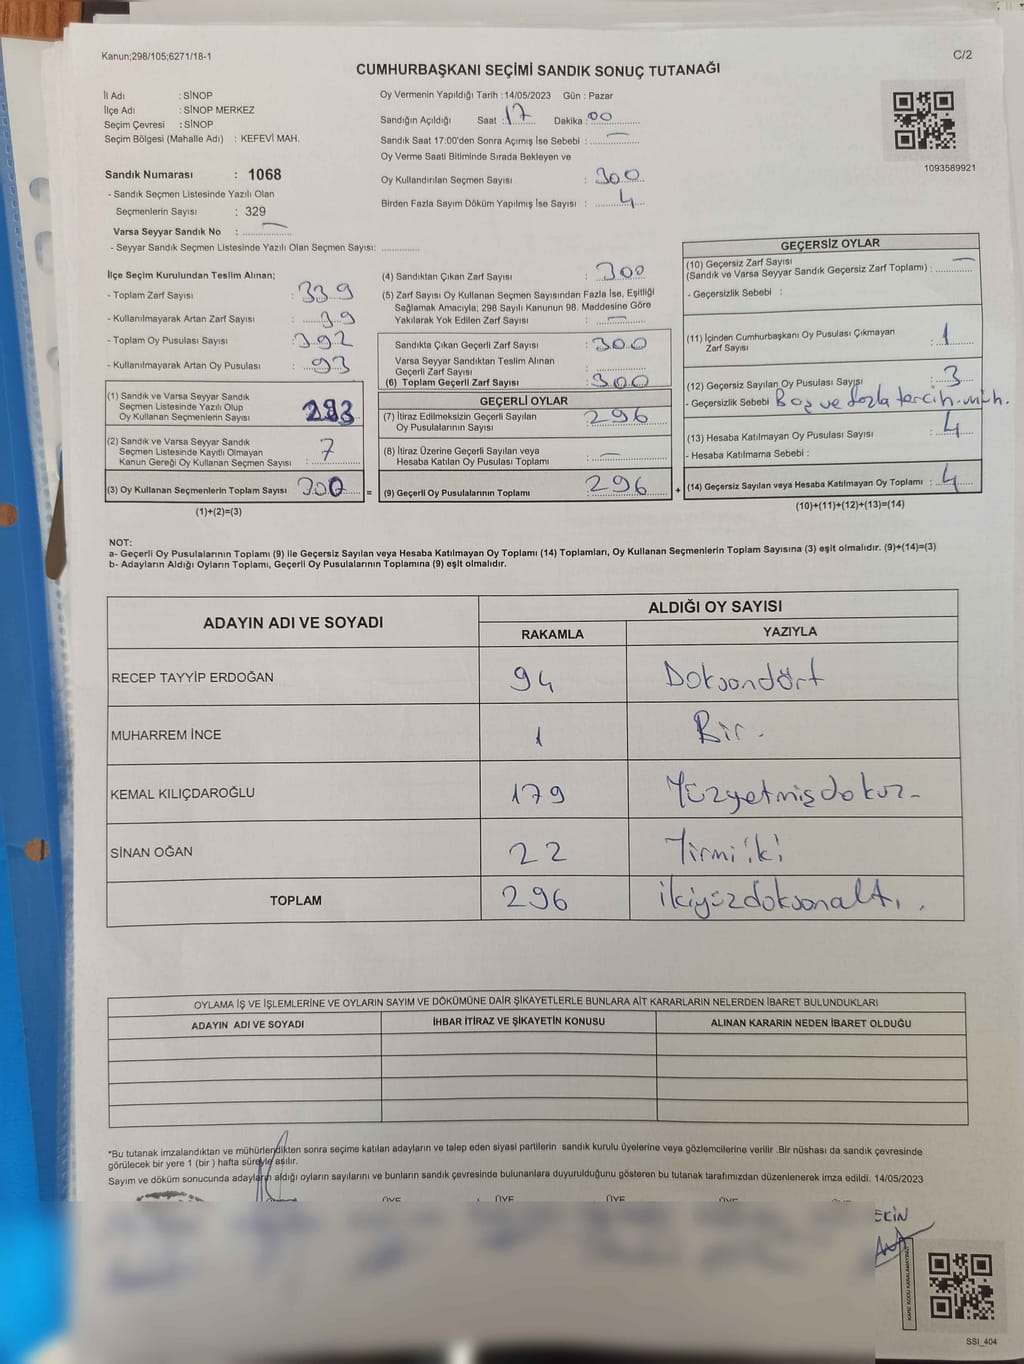 Kanun;298/105;6271/18-1
C/2
CUMHURBAŞKANI SEÇİMİ SANDIK SONUÇ TUTANAĞI
İl Adı : SİNOP
İlçe Adı : SİNOP MERKEZ
Seçim Çevresi : SİNOP
Seçim Bölgesi (Mahalle Adı) : KEFEVİ MAH.
Sandık Numarası : 1068
- Sandık Seçmen Listesinde Yazılı Olan
Seçmenlerin Sayısı : 329
Varsa Seyyar Sandık No : —
- Seyyar Sandık Seçmen Listesinde Yazılı Olan Seçmen Sayısı: ..............
Oy Vermenin Yapıldığı Tarih :14/05/2023 Gün : Pazar
Sandığın Açıldığı Saat : 17 Dakika : 00
Sandık Saat 17:00'den Sonra Açımış İse Sebebi : —
Oy Verme Saati Bitiminde Sırada Bekleyen ve
Oy Kullandırılan Seçmen Sayısı : 300
Birden Fazla Sayım Döküm Yapılmış İse Sayısı : 4
1093589921
İlçe Seçim Kurulundan Teslim Alınan;
- Toplam Zarf Sayısı : 339
- Kullanılmayarak Artan Zarf Sayısı : 39
- Toplam Oy Pusulası Sayısı : 392
- Kullanılmayarak Artan Oy Pusulası : 93
(1) Sandık ve Varsa Seyyar Sandık
Seçmen Listesinde Yazılı Olup
Oy Kullanan Seçmenlerin Sayısı : 293
(2) Sandık ve Varsa Seyyar Sandık
Seçmen Listesinde Kayıtlı Olmayan
Kanun Gereği Oy Kullanan Seçmen Sayısı : 7
(3) Oy Kullanan Seçmenlerin Toplam Sayısı : 300 =
(1)+(2)=(3)
(4) Sandıktan Çıkan Zarf Sayısı : 300
(5) Zarf Sayısı Oy Kullanan Seçmen Sayısından Fazla İse, Eşitliği
Sağlamak Amacıyla; 298 Sayılı Kanunun 98. Maddesine Göre
Yakılarak Yok Edilen Zarf Sayısı : —
Sandıkta Çıkan Geçerli Zarf Sayısı : 300
Varsa Seyyar Sandıktan Teslim Alınan
Geçerli Zarf Sayısı
(6) Toplam Geçerli Zarf Sayısı : 300
GEÇERLİ OYLAR
(7) İtiraz Edilmeksizin Geçerli Sayılan
Oy Pusulalarının Sayısı : 296
(8) İtiraz Üzerine Geçerli Sayılan veya
Hesaba Katılan Oy Pusulası Toplamı : —
(9) Geçerli Oy Pusulalarının Toplamı : 296 +
GEÇERSİZ OYLAR
(10) Geçersiz Zarf Sayısı
(Sandık ve Varsa Seyyar Sandık Geçersiz Zarf Toplamı) : —
- Geçersizlik Sebebi :
(11) İçinden Cumhurbaşkanı Oy Pusulası Çıkmayan
Zarf Sayısı : 1
(12) Geçersiz Sayılan Oy Pusulası Sayısı : 3
- Geçersizlik Sebebi Boş ve fazla tercih.
(13) Hesaba Katılmayan Oy Pusulası Sayısı : 4
- Hesaba Katılmama Sebebi :
(14) Geçersiz Sayılan veya Hesaba Katılmayan Oy Toplamı : 4
(10)+(11)+(12)+(13)=(14)
NOT:
a- Geçerli Oy Pusulalarının Toplamı (9) ile Geçersiz Sayılan veya Hesaba Katılmayan Oy Toplamı (14) Toplamları, Oy Kullanan Seçmenlerin Toplam Sayısına (3) eşit olmalıdır. (9)+(14)=(3)
b- Adayların Aldığı Oyların Toplamı, Geçerli Oy Pusulalarının Toplamına (9) eşit olmalıdır.
ADAYIN ADI VE SOYADI
ALDIĞI OY SAYISI
RAKAMLA YAZIYLA
RECEP TAYYİP ERDOĞAN 94 Doksandört
MUHARREM İNCE 1 Bir.
KEMAL KILIÇDAROĞLU 179 Yüzyetmişdokuz
SİNAN OĞAN 22 Yirmiiki
TOPLAM 296 ikiyüzdoksanaltı.
OYLAMA İŞ VE İŞLEMLERİNE VE OYLARIN SAYIM VE DÖKÜMÜNE DAİR ŞİKAYETLERLE BUNLARA AİT KARARLARIN NELERDEN İBARET BULUNDUKLARI
ADAYIN ADI VE SOYADI İHBAR İTİRAZ VE ŞİKAYETİN KONUSU ALINAN KARARIN NEDEN İBARET OLDUĞU
*Bu tutanak imzalandıktan ve mühürlendikten sonra seçime katılan adayların ve talep eden siyasi partilerin sandık kurulu üyelerine veya gözlemcilerine verilir .Bir nüshası da sandık çevresinde
görülecek bir yere 1 (bir ) hafta süreyle asılır.
Sayım ve döküm sonucunda adayların aldığı oyların sayılarını ve bunların sandık çevresinde bulunanlara duyurulduğunu gösteren bu tutanak tarafımızdan düzenlenerek imza edildi. 14/05/2023
ÜYE ÜYE ÜYE ÜYE
EKİN
KARE KODU KARALAMAYINIZ
SSI_404